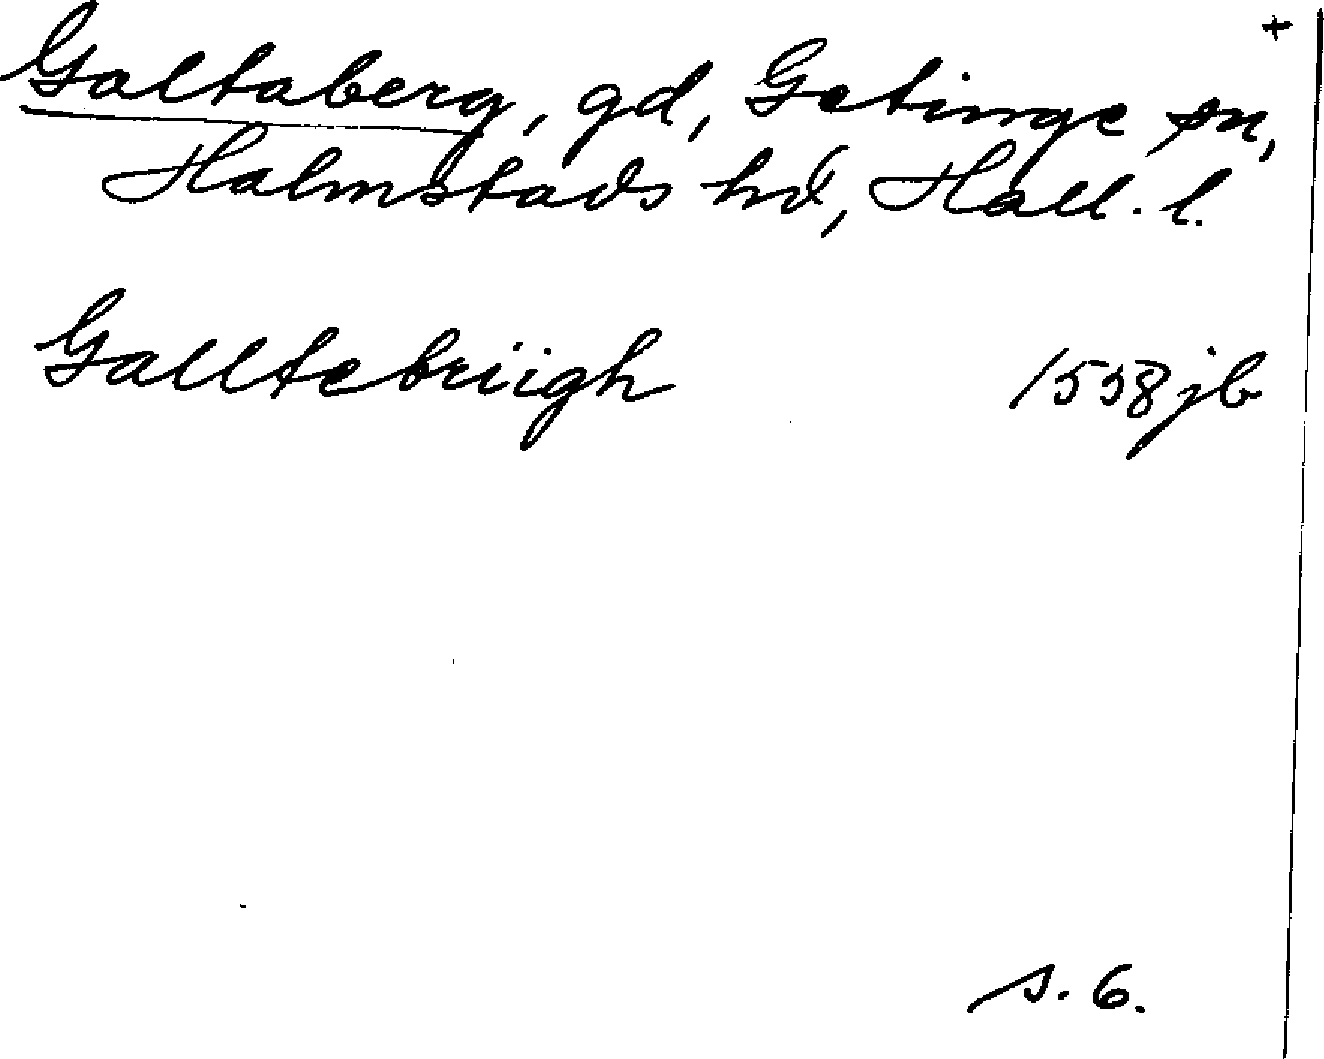 +
Galtaberg, gd, Getinge sn,
Halmstads hd, Hall. l.
Galltebriigh 1558 jb
s. 6.